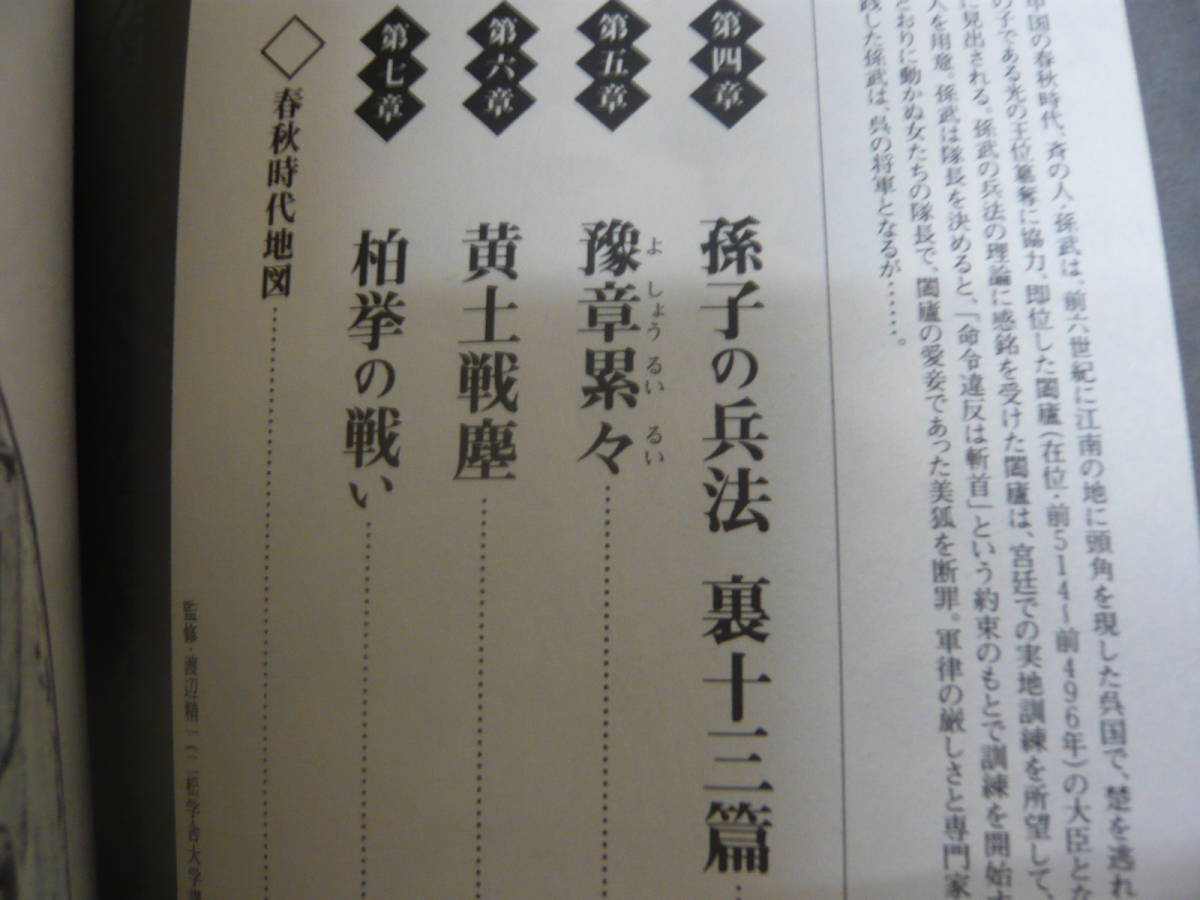 中国の春秋時代、斉の人・孫武は、前六世紀に江南の地に頭角を現した呉国で、楚を逃れ
の子である光の王位簒奪に協力、即位した闔廬(在位・前514〜前496年)の大臣とな
に見出される。孫武の兵法の理論に感銘を受けた闔廬は、宮廷での実地訓練を所望して、
人を用意。孫武は隊長を決めると、「命令違反は斬首」という約束のもとで訓練を開始
どおりに動かぬ女たちの隊長で、闔廬の愛妾であった美狐を断罪。軍律の厳しさと専門家
践した孫武は、呉の将軍となるが……。
第四章 孫子の兵法 裏十三篇
第五章 豫章累々
よしょうるいるい
第六章 黄土戦塵
第七章 柏挙の戦い
◇春秋時代地図
監修・渡辺精一(二松学舎大学